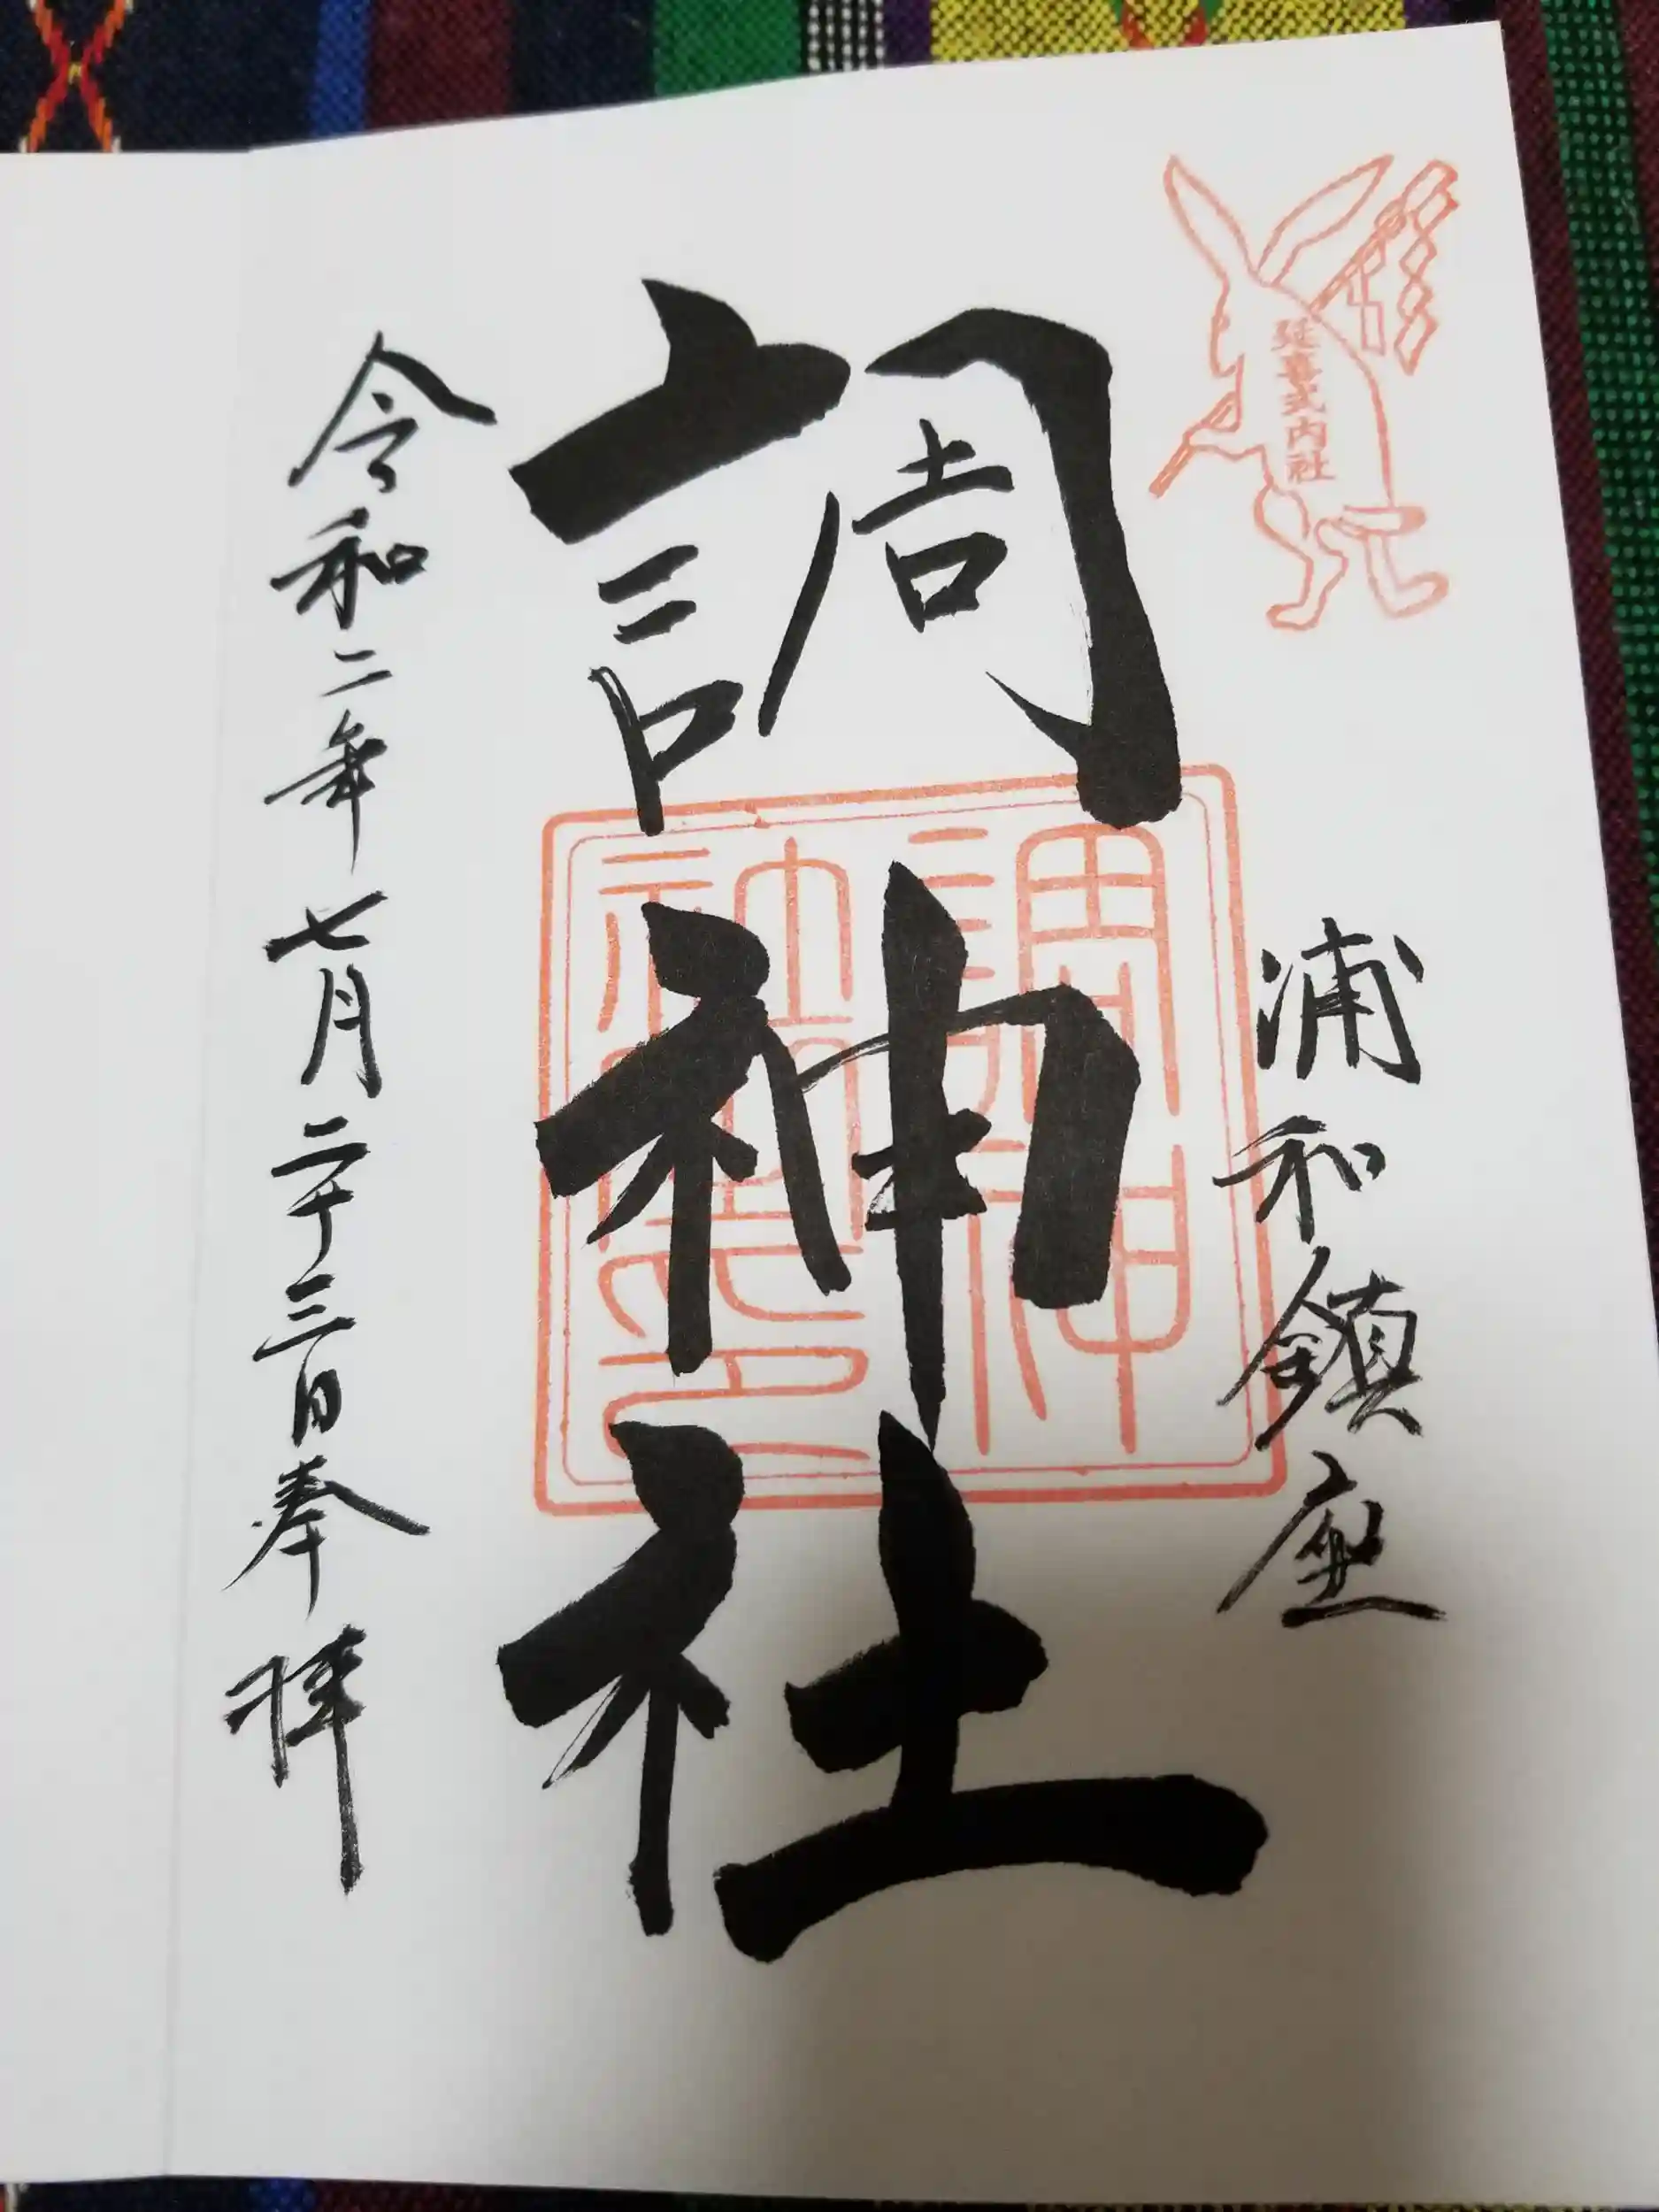 延喜式内社
浦和鎮座
調神社
調神
社印
令和二年七月二十三日奉拝